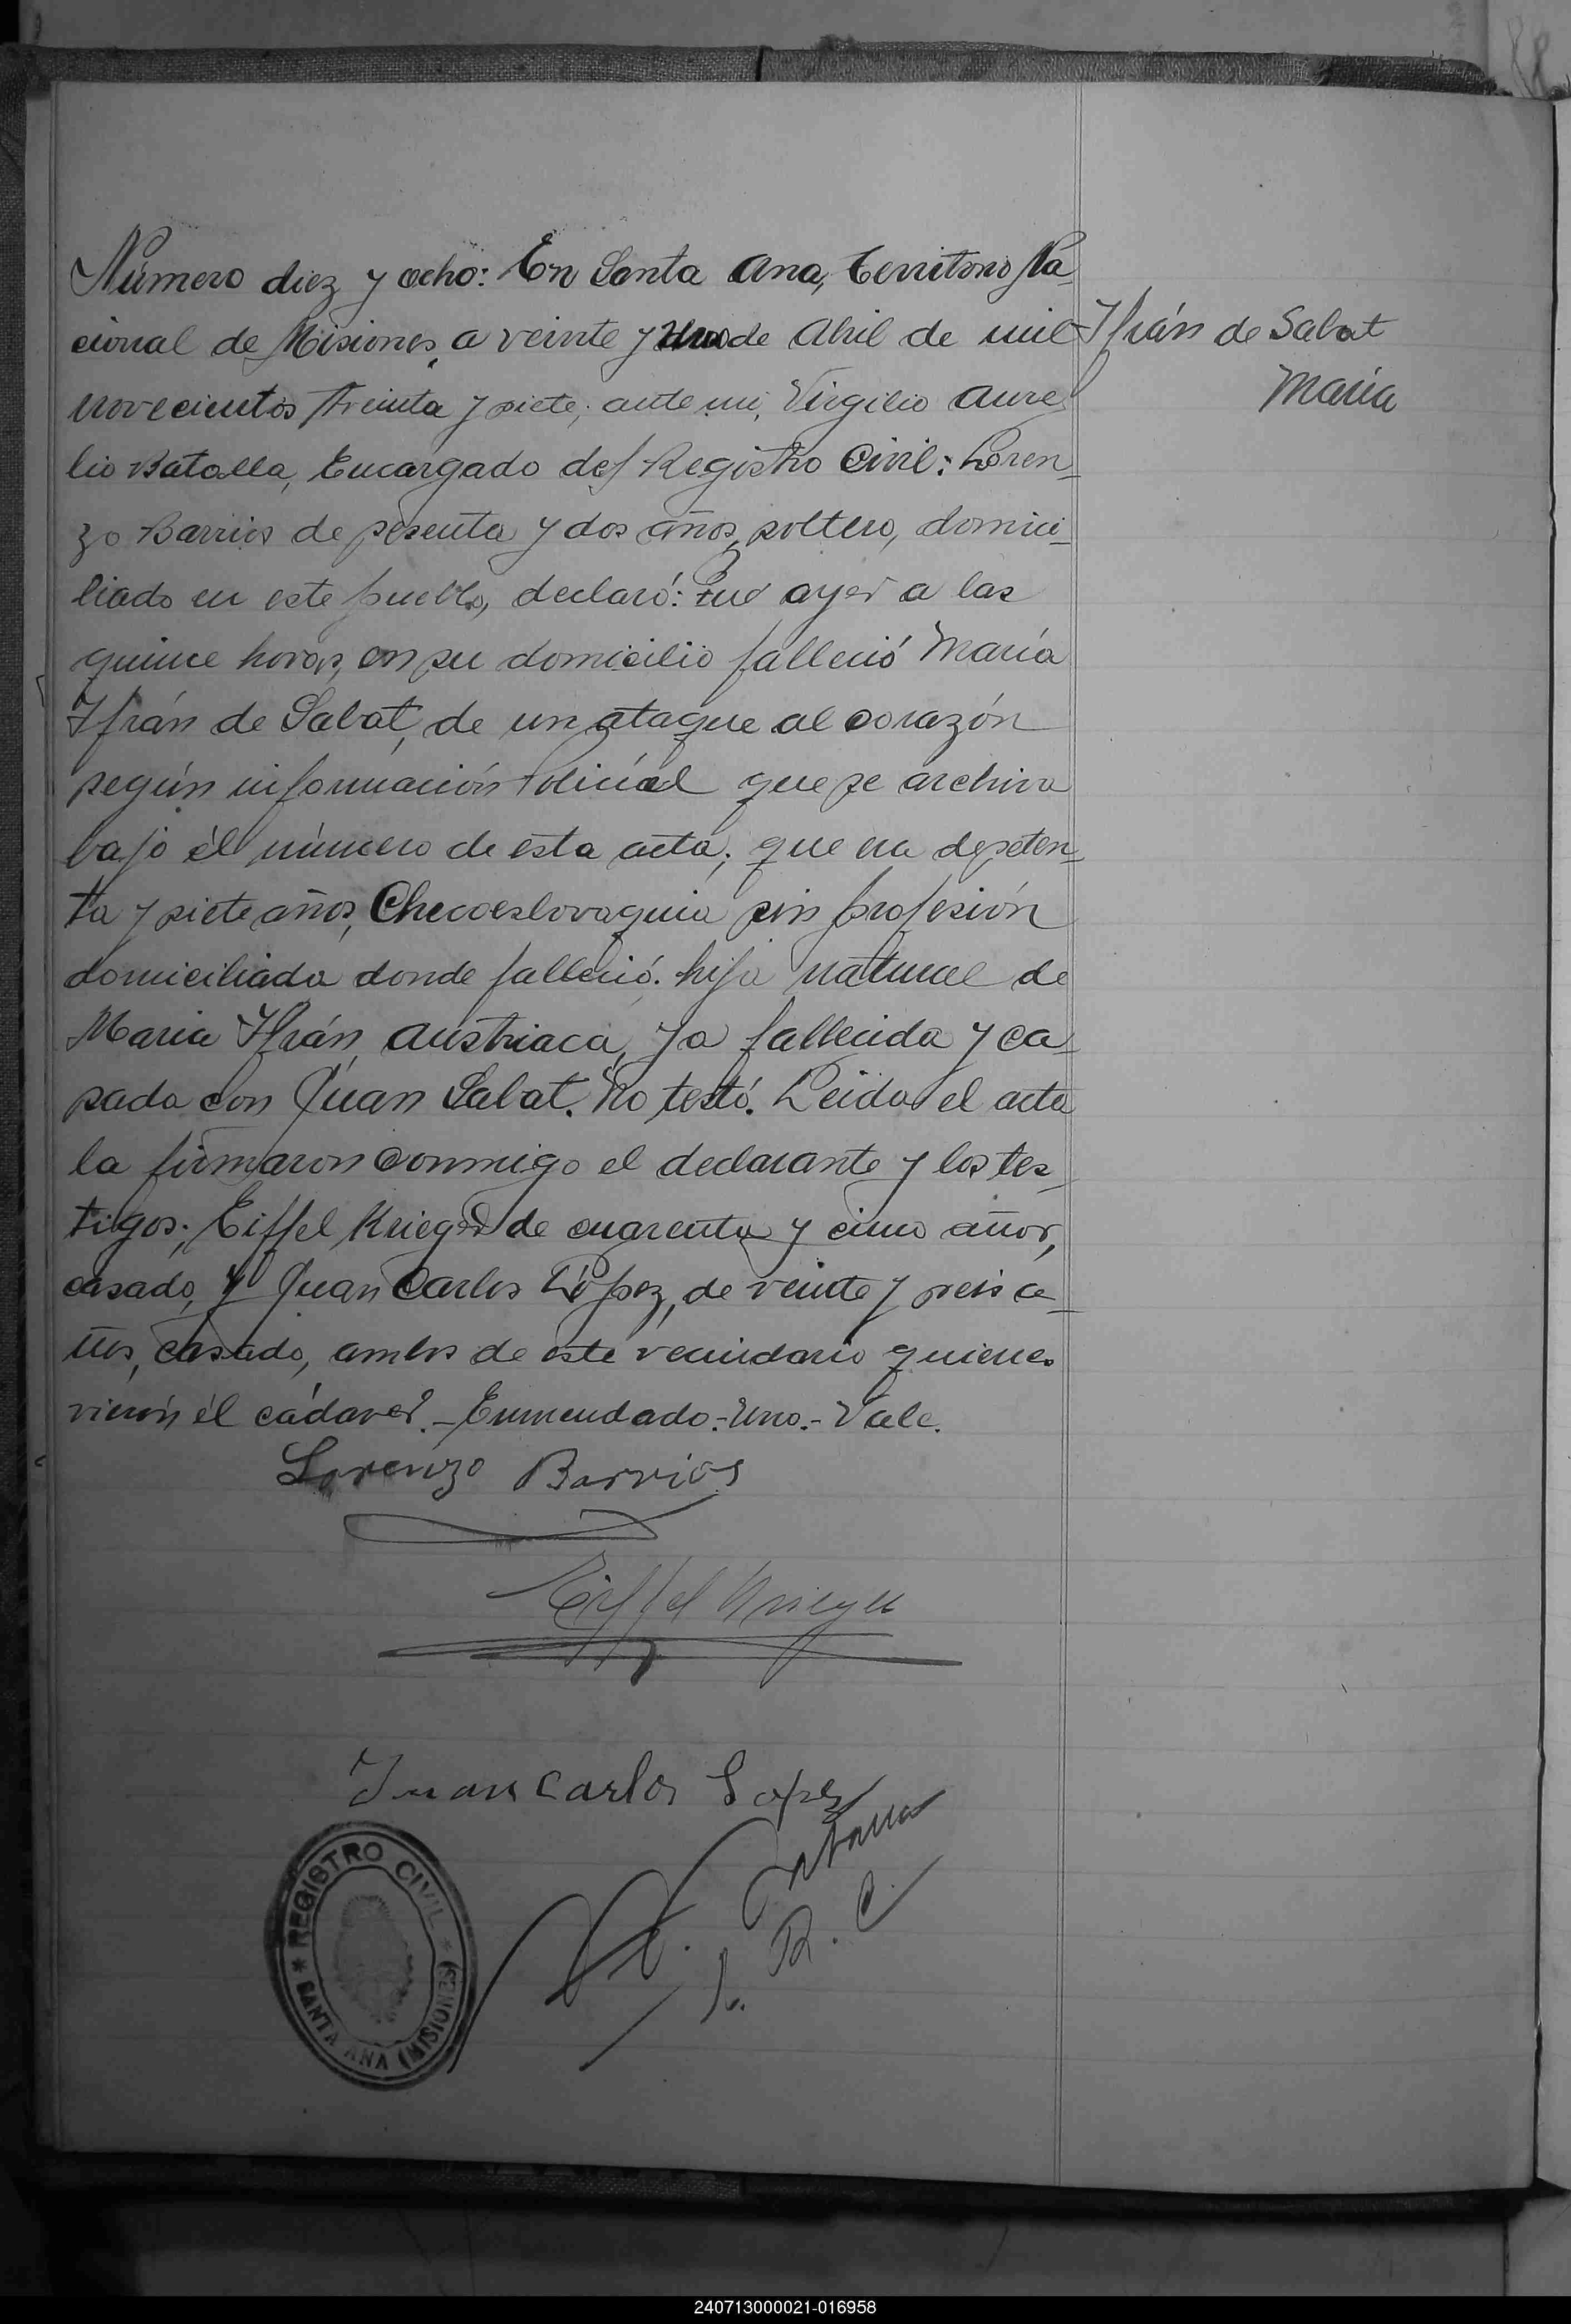 Número diez y ocho: En Santa Ana, Territorio Na-
cional de Misiones, a veinte y Uno de Abril de mil
novecientos treinta y siete; ante mi, Virgilio Aure-
lio Batalla, Encargado del Registro Civil: Loren-
zo Barrios de sesenta y dos años, soltero, domici-
liado en este pueblo, declaró: Que ayer a las
quince horas, en su domicilio falleció María
Ifrán de Sabat, de un ataque al corazón
según información Policial que se archiva
bajo él número de esta acta; que era de seten-
ta y siete años, Checoeslovaquia sin profesión
domiciliada donde falleció. hija natural de
Maria Ifrán, austriaca, ya fallecida y ca-
sada con Juan Sabat. No testó. Leida el acta
la firmaron conmigo el declarante y los tes-
tigos; Eiffel Krieger de cuarenta y cinco años,
casado, y Juan Carlos López, de veinte y seis a-
ños, casado, ambos de este vecindario quienes
vieron él cádaver. - Enmendado:-Uno.- Vale.
Ifrán de Sabat
Maria
Lorenzo Barrios
Eiffel Krieger
Juan Carlos Lopez
REGISTRO CIVIL
* SANTA ANA (MISIONES) *
V. Batalla
R. C.
240713000021-016958